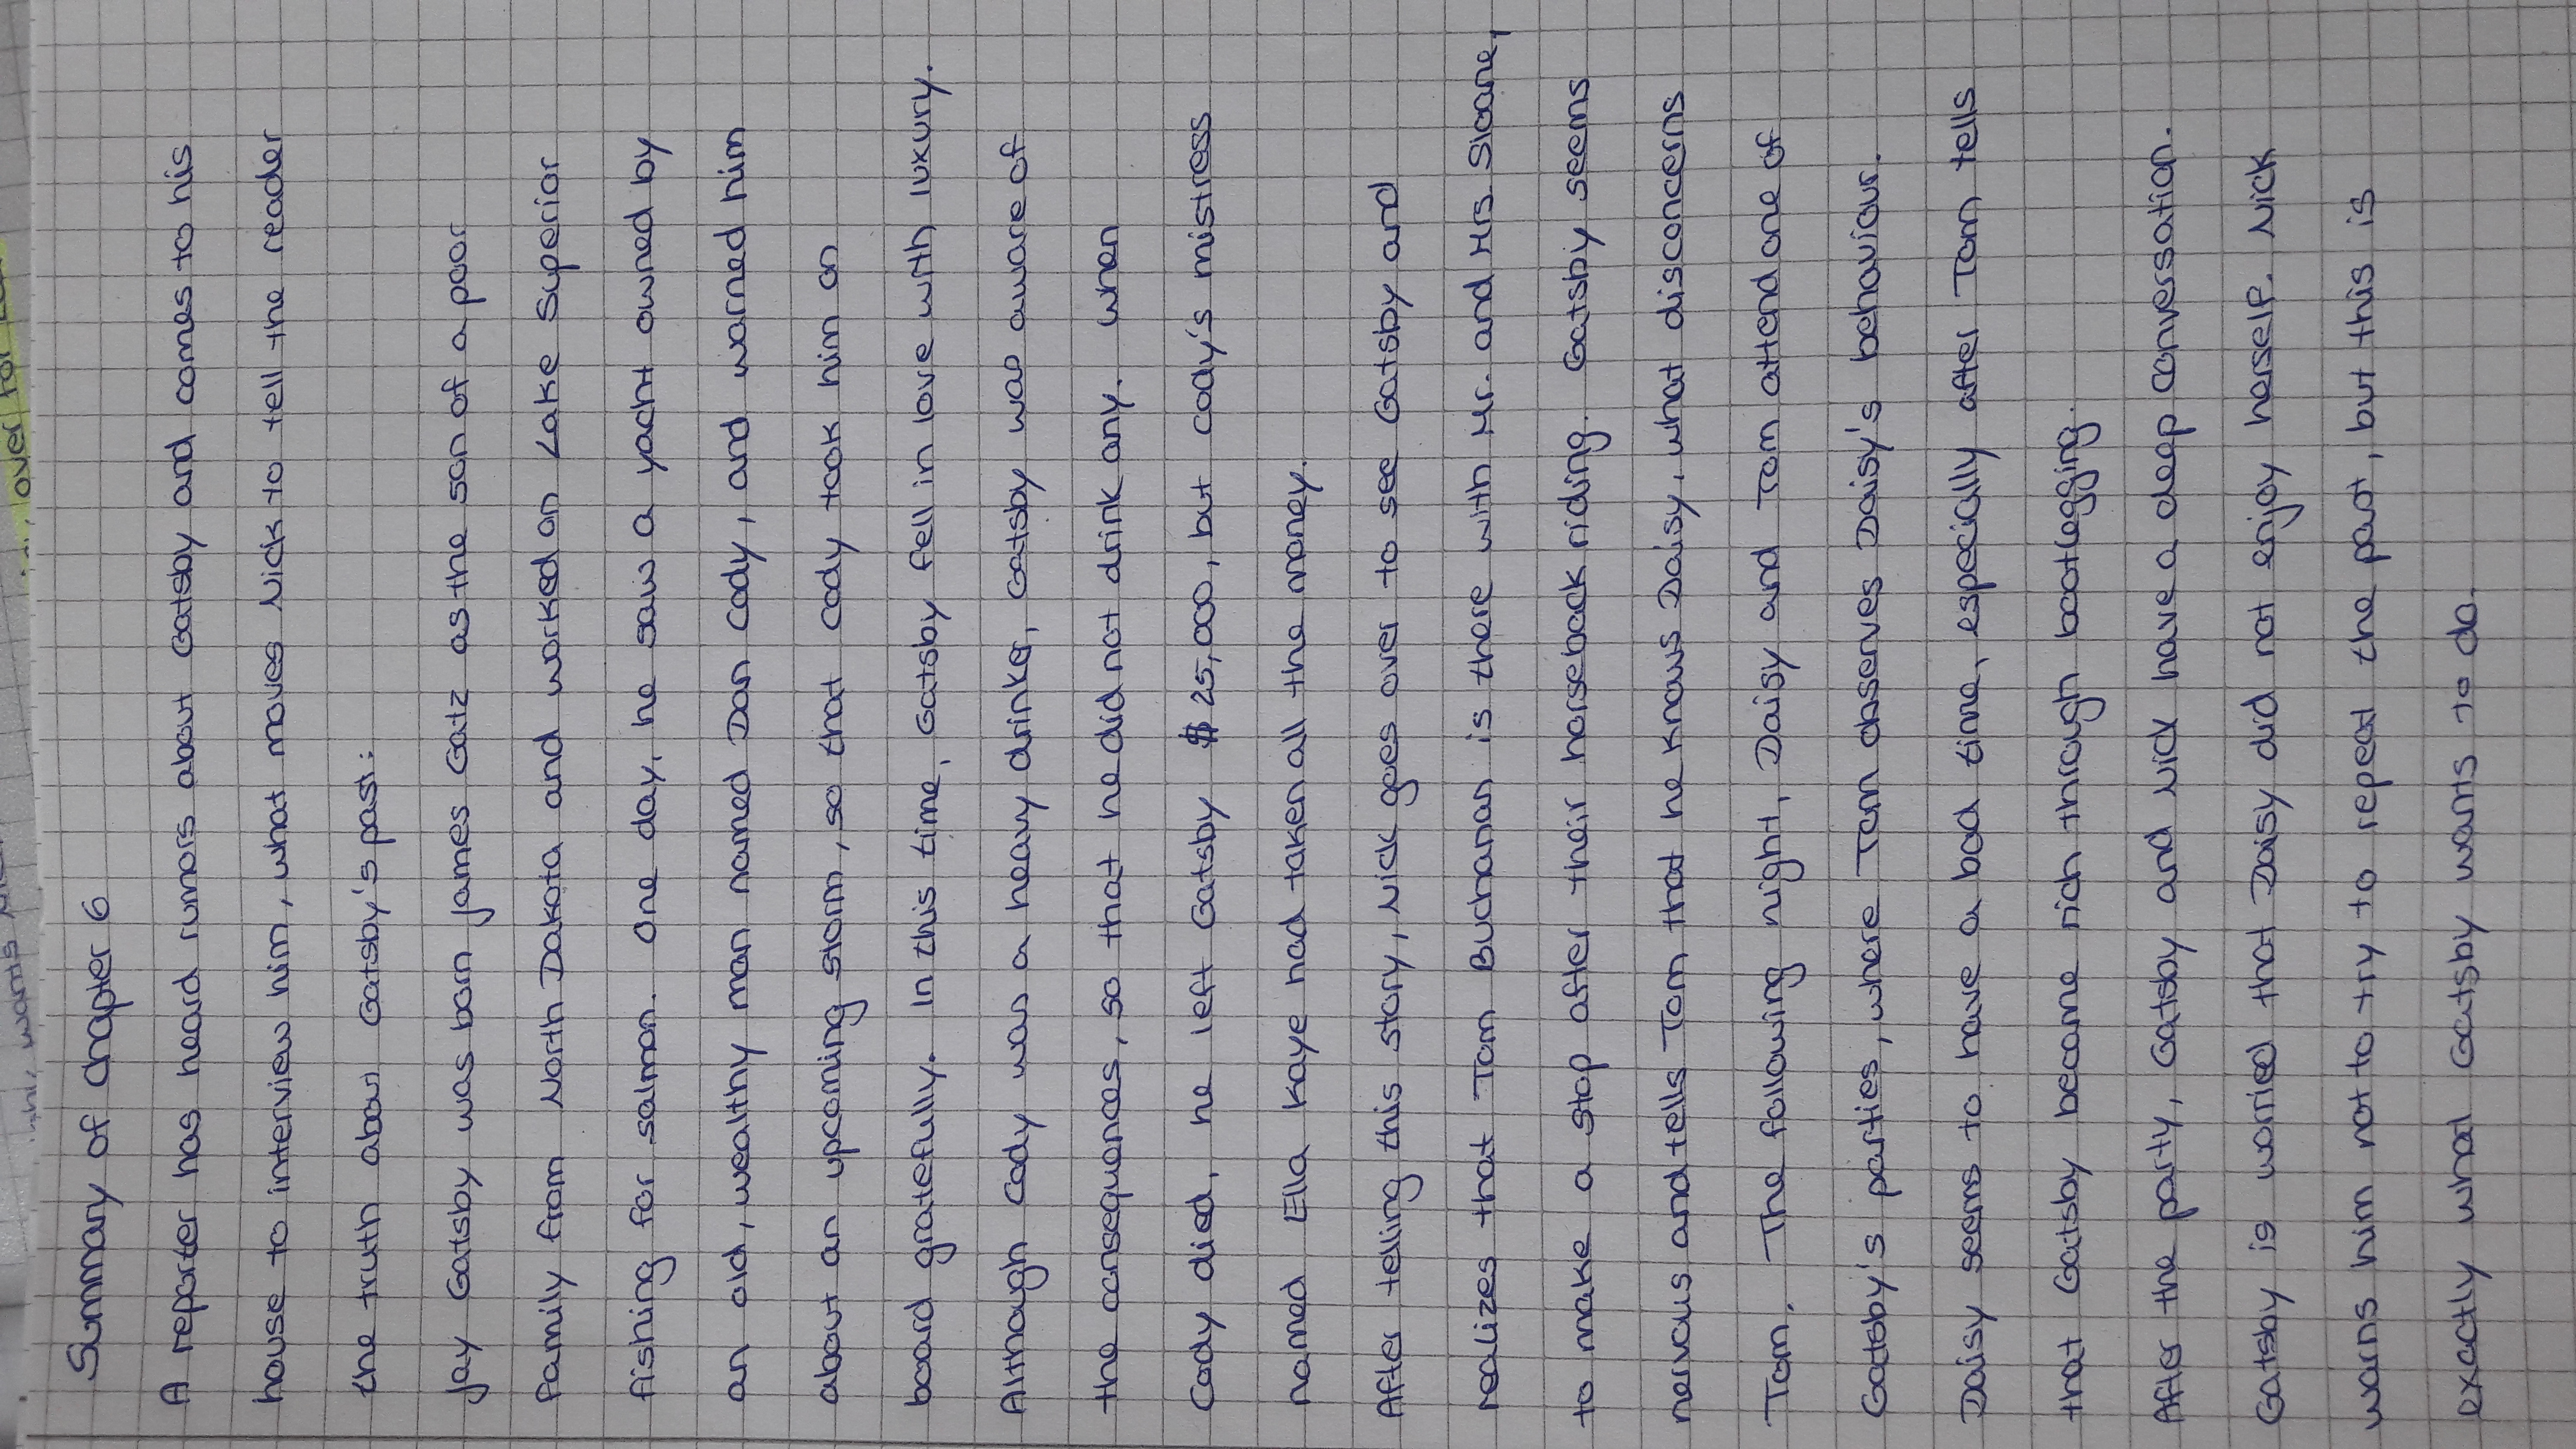 Summary of Chapter 6
A reporter has heard rumors about Gatsby and comes to his
house to interview him, what moves Nick to tell the reader
the truth about Gatsby's past:
Jay Gatsby was born James Gatz as the son of a poor
family from North Dakota and worked on Lake Superior
fishing for salmon. One day, he saw a yacht owned by
an old, wealthy man named Dan Cody, and warned him
about an upcoming storm, so that Cody took him on
board gratefully. In this time, Gatsby fell in love with luxury.
Although Cody was a heavy drinker, Gatsby was aware of
the consequences, so that he did not drink any. When
Cody died, he left Gatsby $25,000, but Cody's mistress
named Ella Kaye had taken all the money.
After telling this story, Nick goes over to see Gatsby and
realizes that Tom Buchanan is there with Mr. and Mrs. Sloane,
to make a stop after their horseback riding. Gatsby seems
nervous and tells Tom that he knows Daisy, what disconcerns
Tom. The following night, Daisy and Tom attend one of
Gatsby's parties, where Tom observes Daisy's behaviour.
Daisy seems to have a bad time, especially after Tom tells
that Gatsby became rich through bootlegging.
After the party, Gatsby and Nick have a deep conversation.
Gatsby is worried that Daisy did not enjoy herself. Nick
warns him not to try to repeat the past, but this is
exactly what Gatsby wants to do.
over for
wants